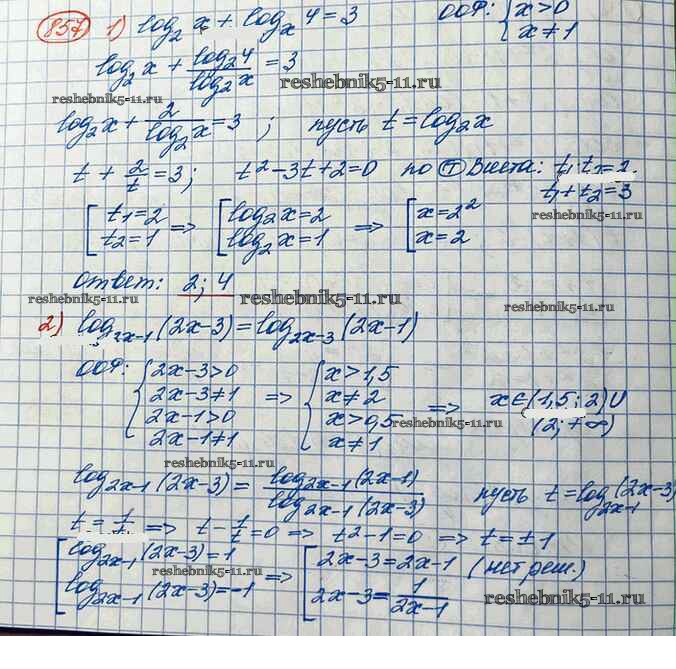 857 1) log₂ x + logₓ 4 = 3   ООФ: { x > 0
x ≠ 1
log₂ x + log₂ 4 / log₂ x = 3
reshebnik5-11.ru reshebnik5-11.ru
log₂ x + 2 / log₂ x = 3 ; пусть t = log₂ x
t + 2/t = 3 ; t² - 3t + 2 = 0 по Т Виета: t₁ · t₂ = 2.
t₁ + t₂ = 3
[ t₁ = 2 => [ log₂ x = 2 => [ x = 2²
t₂ = 1   log₂ x = 1   x = 2
reshebnik5-11.ru
ответ: 2; 4
reshebnik5-11.ru reshebnik5-11.ru reshebnik5-11.ru
2) log₂ₓ₋₁ (2x-3) = log₂ₓ₋₃ (2x-1)
ООФ: { 2x-3 > 0 => { x > 1,5 => x ∈ (1,5; 2) ∪
2x-3 ≠ 1   x ≠ 2   (2; +∞)
2x-1 > 0   x > 0,5
2x-1 ≠ 1   x ≠ 1
reshebnik5-11.ru
log₂ₓ₋₁ (2x-3) = log₂ₓ₋₁ (2x-1) / log₂ₓ₋₁ (2x-3)   пусть t = log₂ₓ₋₁ (2x-3)
t = 1/t => t - 1/t = 0 => t² - 1 = 0 => t = ±1
[ log₂ₓ₋₁ (2x-3) = 1 => [ 2x-3 = 2x-1 (нет реш.)
reshebnik5-11.ru
log₂ₓ₋₁ (2x-3) = -1   2x-3 = 1 / 2x-1
reshebnik5-11.ru